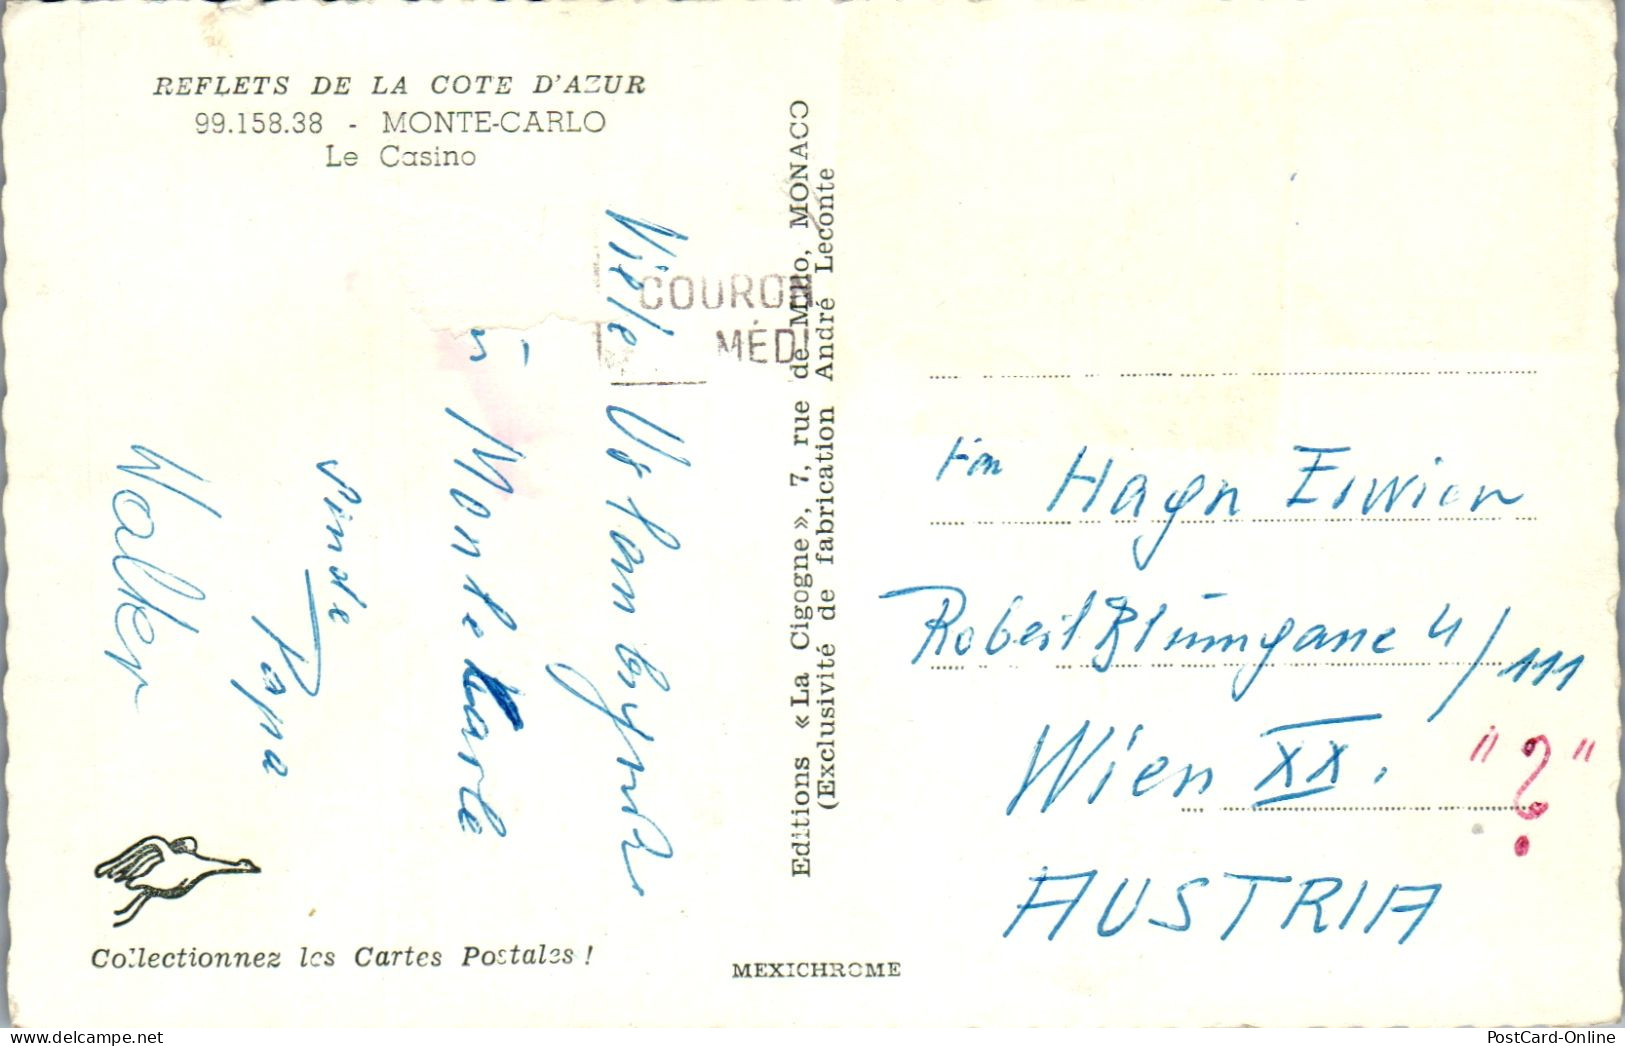 REFLETS DE LA COTE D'AZUR
99.158.38 - MONTE-CARLO
Le Casino
COURON
MÉDI
Viele
in
Monte Karlo
sendet
Papa
Walter
Editions «La Cigogne», 7, rue de Millo, MONACO
(Exclusivité de fabrication André Leconte
Hagn Erwien
Robert Blumgane 4/111
Wien XX.
"?"
AUSTRIA
Collectionnez les Cartes Postales !
MEXICHROME
www.delcampe.net
PostCard-Online